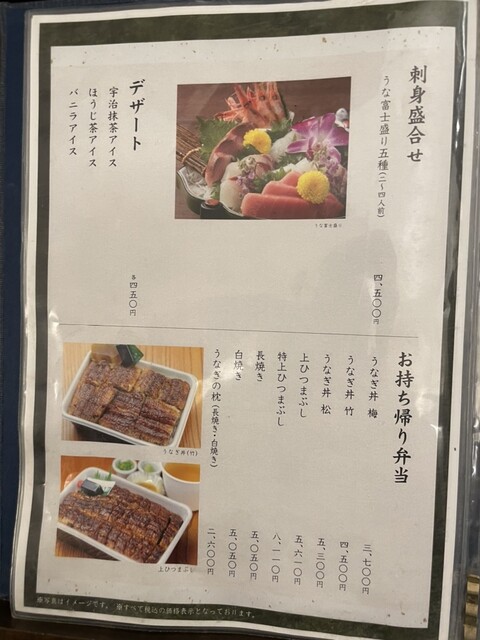 刺身盛合せ
うな富士盛り五種(二〜四人前) 四、五〇〇円
うな富士盛り
デザート
宇治抹茶アイス
ほうじ茶アイス
バニラアイス
各四五〇円
お持ち帰り弁当
うなぎ丼 梅 三、七〇〇円
うなぎ丼 竹 四、五〇〇円
うなぎ丼 松 五、三〇〇円
上ひつまぶし 五、六一〇円
特上ひつまぶし 八、一一〇円
長焼き 五、〇五〇円
白焼き 五、〇五〇円
うなぎの枕(長焼き・白焼き) 二、六〇〇円
うなぎ丼(竹)
上ひつまぶし
※写真はイメージです。 ※すべて税込の価格表示となっております。